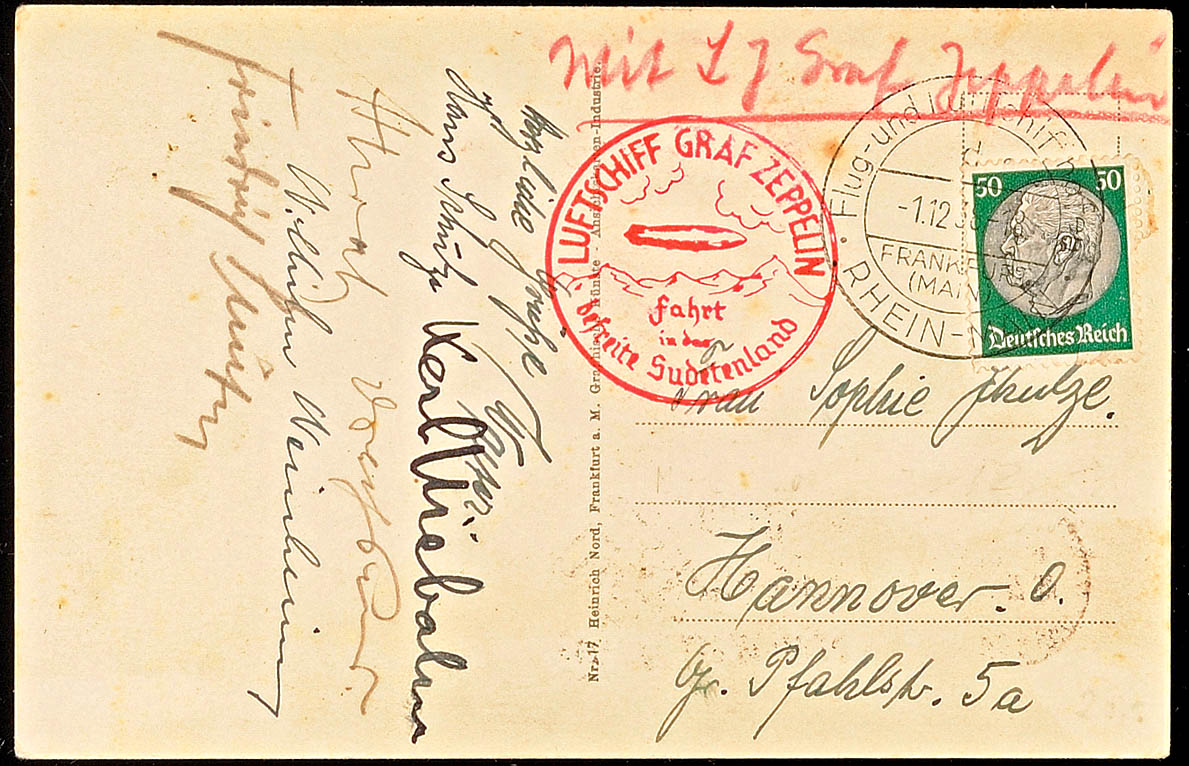 Mit LZ Graf Zeppelin
LUFTSCHIFF GRAF ZEPPELIN
Fahrt
in das
befreite Sudetenland
Flug- und Luftschiffhafen
-1.12.38
FRANKFURT
(MAIN)
RHEIN-MAIN
50 50
Deutsches Reich
Frau Sophie Schulze.
Hannover. O.
Gr. Pfahlstr. 5a
Nr. 17 Heinrich Nord, Frankfurt a. M. Graphische Künste - Ansichtskarten-Industrie.
Herzliche Grüße
Hans Schulze
Karl Wiebalm
Wilhelm Weinheim